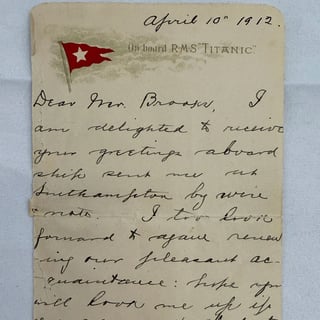 April 10" 1912.
On board R.M.S. "TITANIC"
Dear Mr. I
am delighted to receive
your greetings aboard
ship sent me at
Southampton by wire
& note. I too look
forward to again renew
ing our pleasant ac-
quaintance: hope you
will look me up if